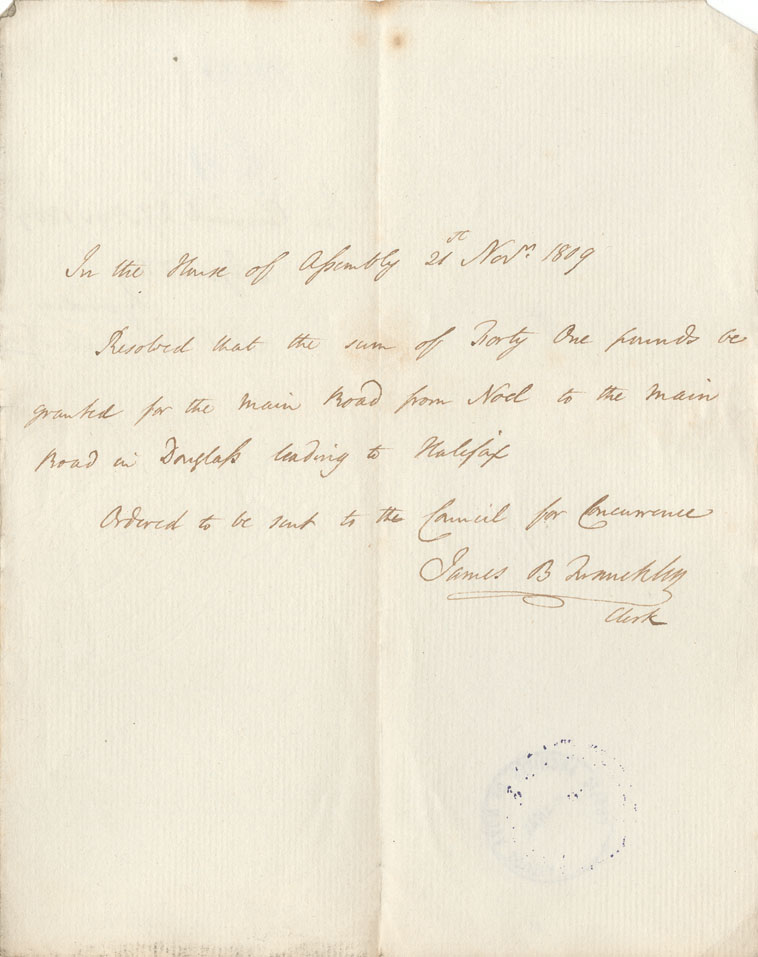 In the House of Assembly 21st Novr. 1809
Resolved that the sum of Forty One pounds be
granted for the main Road from Noel to the main
Road in Douglass leading to Halifax
Ordered to be sent to the Council for Concurrence
James B Franckly
Clerk